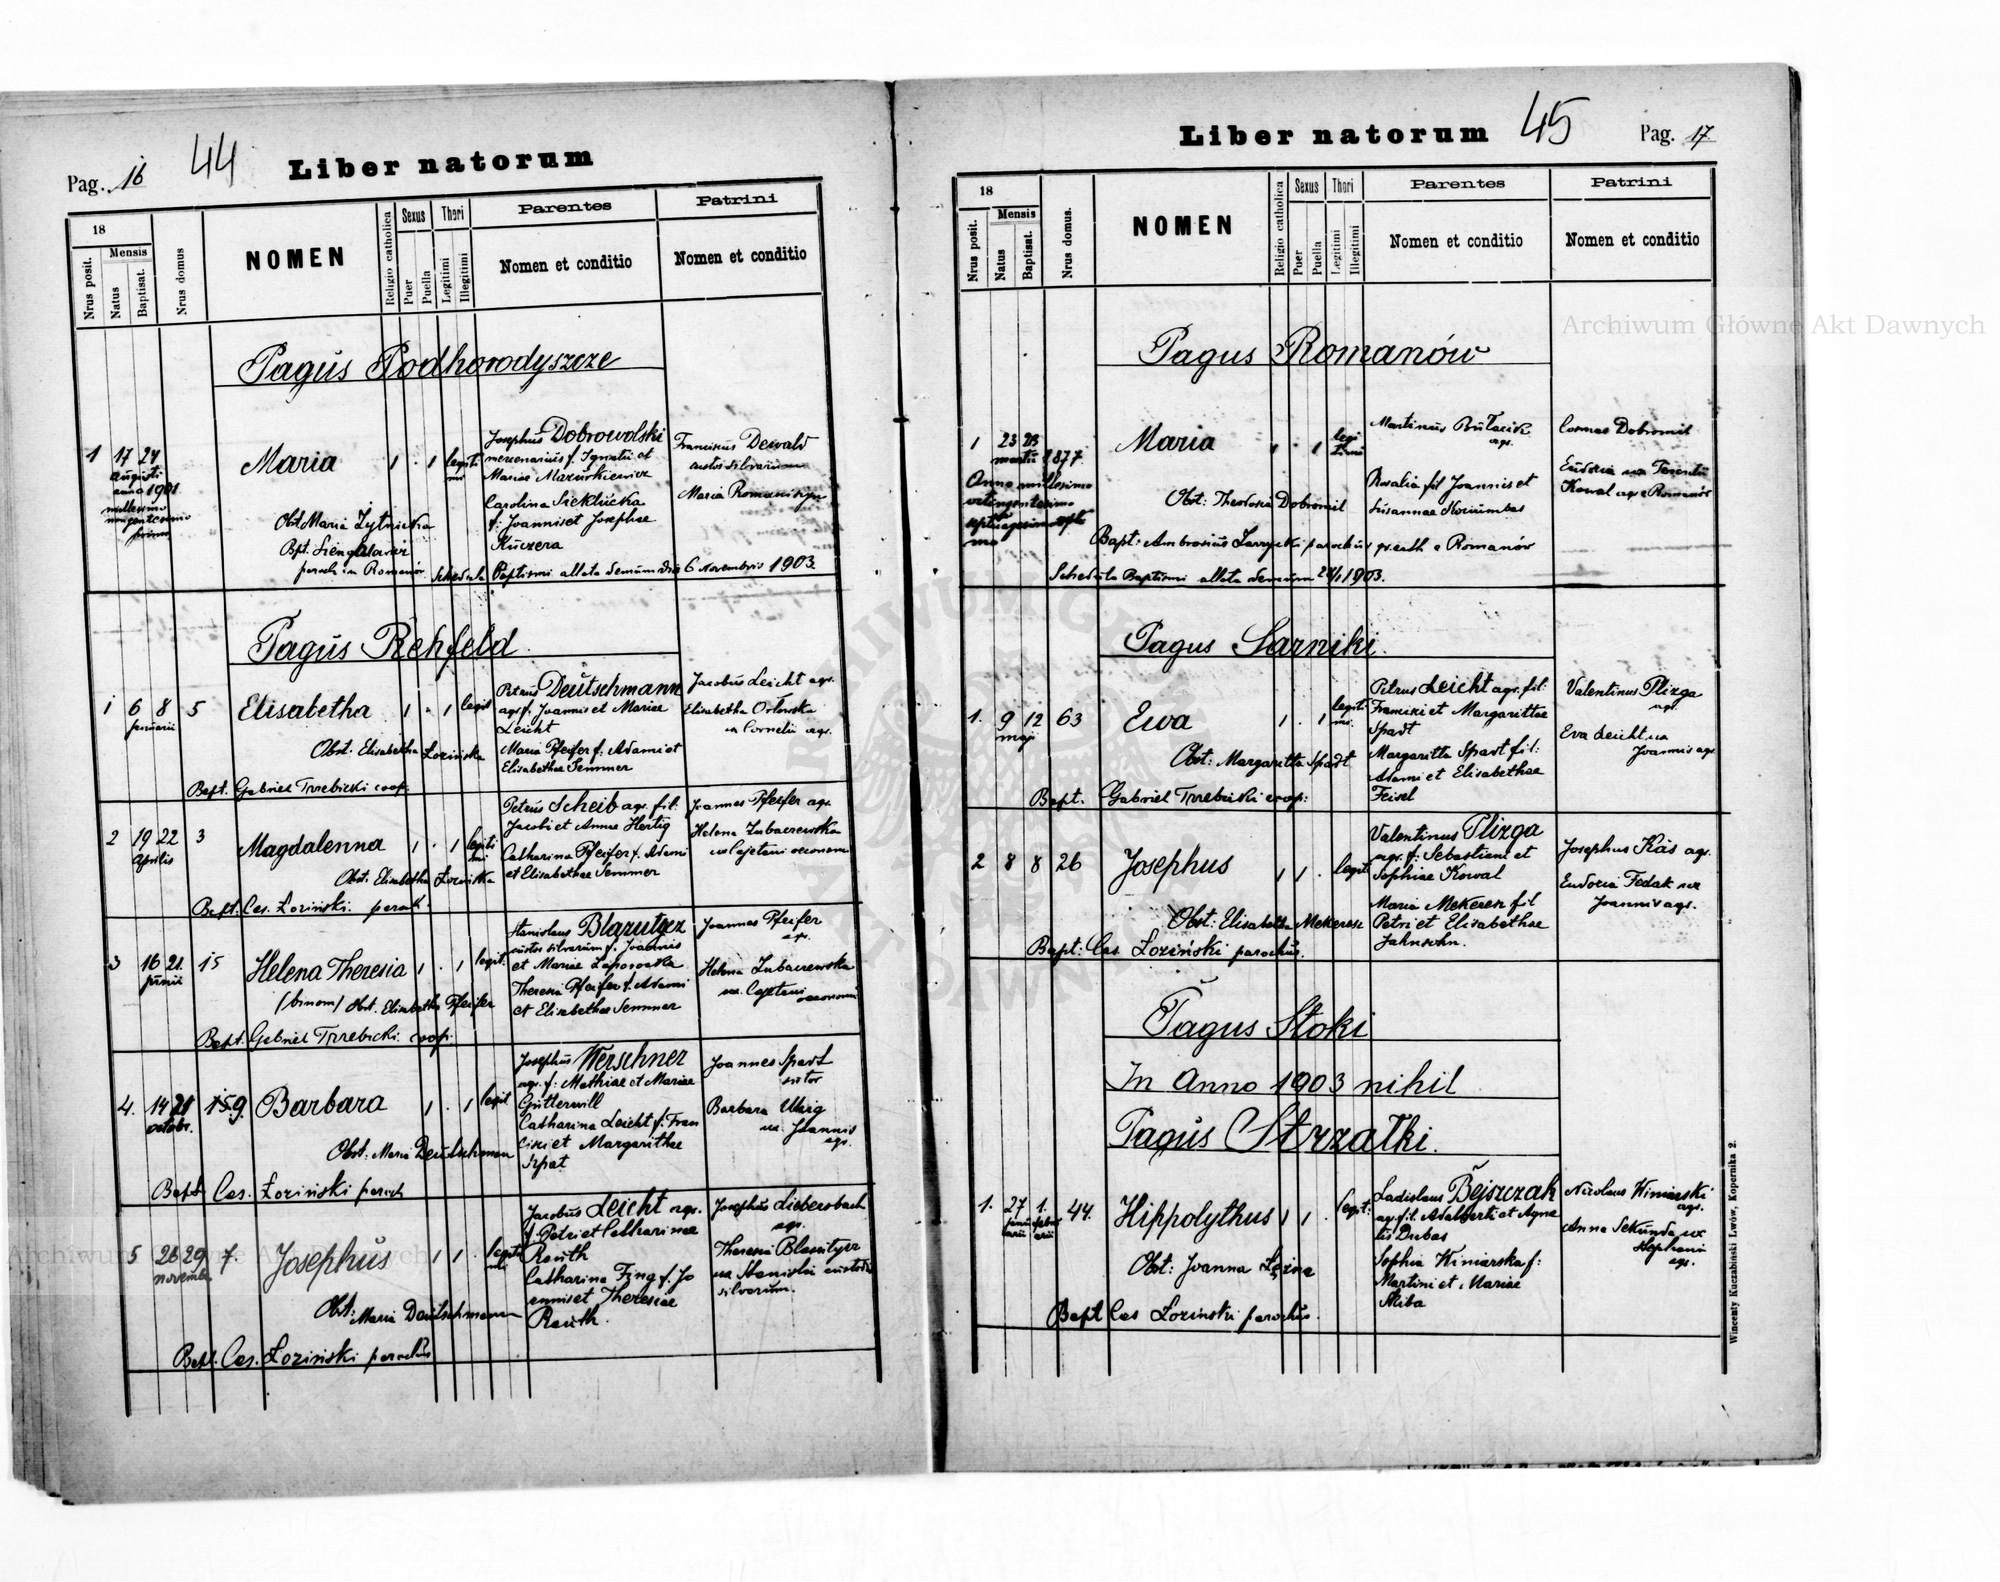 Pag. 16
44
Liber natorum
18
Nrus posit.
Mensis
Natus
Baptisat.
Nrus domus
NOMEN
Religio catholica
Sexus
Puer
Puella
Thori
Legitimi
Illegitimi
Parentes
Nomen et conditio
Patrini
Nomen et conditio
Pagus Podhorodyszcze
1 17 24 Maria 1 . 1 legiti
mi
Augusti
anno 1901
millesimo
primo
Josephus Dobrowolski
mercenarius f. Ignatii et
Mariae Mazurkiewicz
Carolina
f: Joannis et Josephae
Kuczera
Franciscus Dewald
custos silvarum
Maria
Obst. Maria Zytnicka
Bpt.
paroch in Romanów
Schedula Baptismi allata demum die 6 Novembris 1903.
Pagus Rehfeld
1 6 8 5 Elisabetha 1 . 1 legit
Januarii
Petrus Deutschmann
agr. f. Joannis et Mariae
Leicht
Maria Pfeifer f. Adami et
Elisabethae Semmer
Jacobus Leicht agr.
Elisabetha Orłowska
ux Cornelii agr.
Obst. Elisabetha Łozińska
Bapt. Gabriel Trzebicki coop.
2 19 22 3 Magdalenna 1 . 1 legiti
mi
Aprilis
Petrus Scheib agr. fil:
Jacobi et Annae Hertig
Catharina Pfeifer f. Adami
et Elisabethae Semmer
Joannes Pfeifer agr.
Helena Lubaczewska
ux Cajetani oeconomi
Obst. Elisabetha Łozińska
Bapt. Ces. Łoziński paroch.
3 16 21 15 Helena Theresia 1 . 1 legit.
Junii
Stanislaus Blazutycz
custos silvarum f. Joannis
et Mariae
Theresia Pfeifer f. Adami
et Elisabethae Semmer
Joannes Pfeifer
agr.
Helena Lubaczewska
ux. Cajetani
oeconomi
(binom) Obst. Elisabetha Pfeifer
Bapt. Gabriel Trzebicki. coop.
4. 14 21 159. Barbara 1 . 1 legit
octobr.
Josephus Werschner
agr. f: Mathiae et Mariae
Gutterwill
Catharina Leicht f. Fran
cisci et Margarithae
Szpat
Joannes Spadt
sutor
Barbara Uhrig
ux. Joannis
agr.
Obst: Maria Deutschman
Bapt. Ces. Łoziński paroch
5 26 29 7. Josephus 1 1 . legiti
mi
novemb.
Jacobus Leicht agr.
f. Petri et Catharinae
Reuth
Catharina Fing f. Jo
annis et Theresiae
Reuth.
Josephus Liebersbach
agr.
Theresia
ux Stanislai custodis
silvarum.
Obst: Maria Deutschmann
Bapt. Ces. Łoziński parochus
Liber natorum
45
Pag. 17
18
Nrus posit.
Mensis
Natus
Baptisat.
Nrus domus.
NOMEN
Religio catholica
Sexus
Puer
Puella
Thori
Legitimi
Illegitimi
Parentes
Nomen et conditio
Patrini
Nomen et conditio
Pagus Romanów
1 23 23 Maria 1 . 1 legi
timi
martii 1877.
Anno millesimo
septuagesimo
Martinus
agr.
Rosalia fil Joannis et
Susannae
Cosmas Dobromil
Eudoxia ux Terentii
Kowal agr e Romanów
Obst: Theodosia Dobromil
Bapt: Ambrosius parochus gr. cath e Romanów
Schedula Baptismi allata demum 1903.
Pagus Sarniki.
1. 9 12 63 Ewa 1 . 1 legiti
mi.
maji
Petrus Leicht agr. fil:
Francisci et Margarittae
Spadt
Margaritta Spadt fil:
Adami et Elisabethae
Feisel
Valentinus Plizga
agr.
Eva Leicht ux
Joannis agr.
Obst: Margaritta Spadt
Bapt. Gabriel Trzebicki coop:
2 8 8 26 Josephus 1 1 . legit
Valentinus Plizga
agr. f: Sebastiani et
Sophiae Kowal
Maria Mekeresz fil
Petri et Elisabethae
Jahnsohn.
Josephus Kąs agr.
Eudoxia Fedak ux
Joannis agr.
Obst: Elisabetha Mekeresz
Bapt: Ces. Łoziński parochus.
Pagus Stoki
In Anno 1903 nihil
Pagus Strzałki.
1. 27 1. 44. Hippolythus 1 1 . legit:
Ladislaus Bejszczak
agr. fil. Adalberti et Agne
tis Dubas
Sophia Winiarska f:
Martini et Mariae
Skiba
Nicolaus Winiarski
agr.
Anna Sekunda ux
Stephani
agr.
Obst: Joanna
Bapt Ces Łoziński parochus.
Wincenty Kuczabiński Lwów, Kopernika 2.
Archiwum Główne Akt Dawnych
Archiwum Główne Akt Dawnych
ARCHIWUM GŁÓWNE AKT DAWNYCH